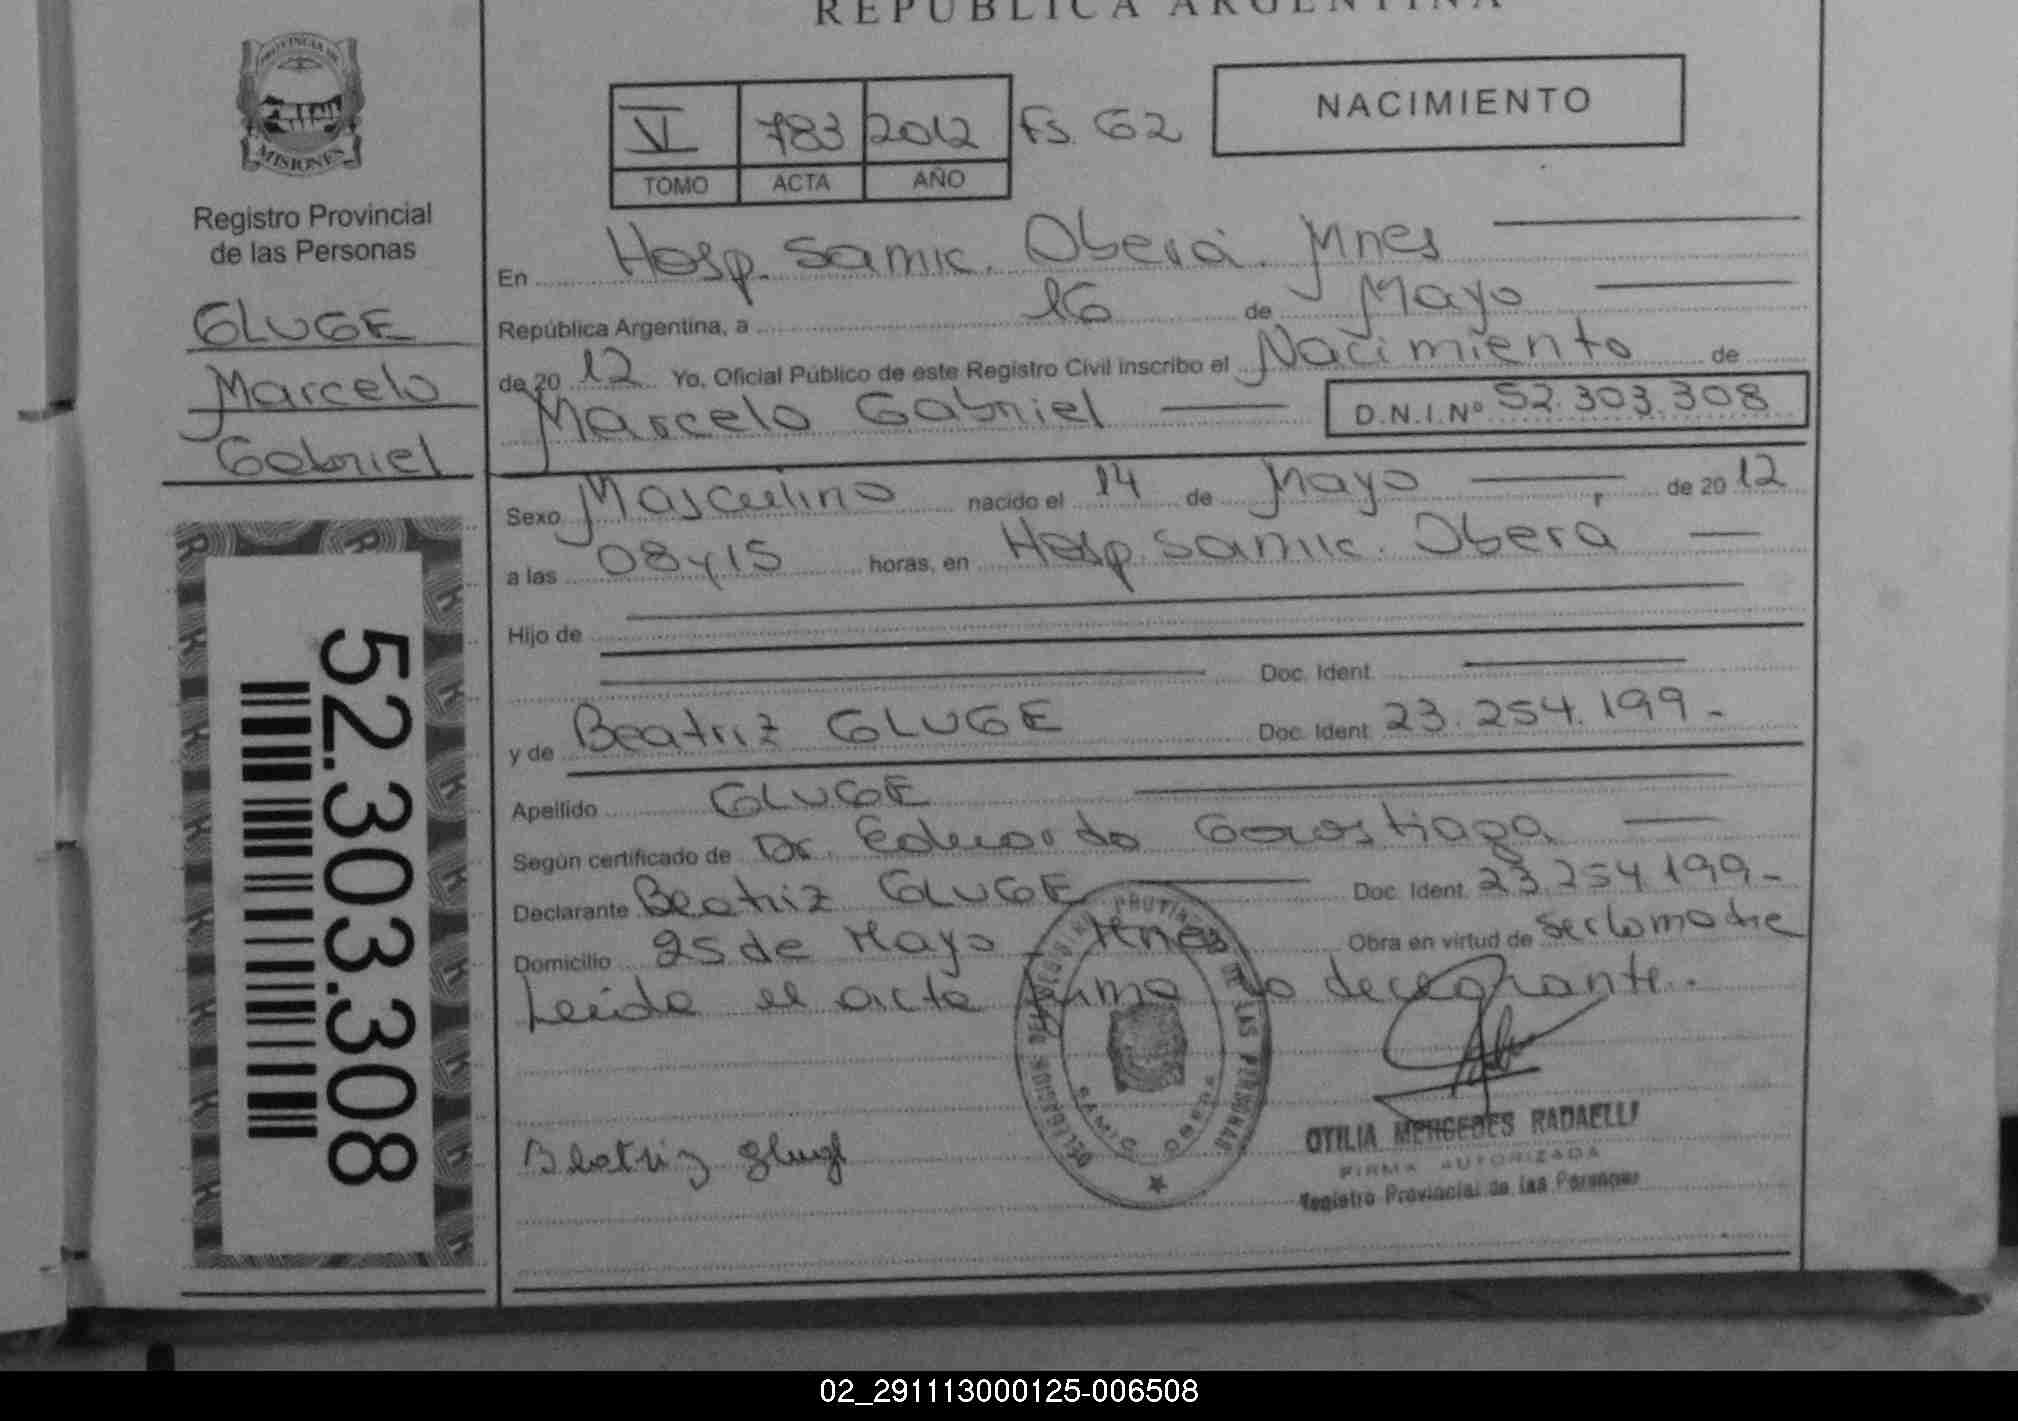 REPUBLICA ARGENTINA
PROVINCIA DE
MISIONES
Registro Provincial
de las Personas
GLUGE
Marcelo
Gabriel
52.303.308
VI 783 2012 Fs. 62
TOMO ACTA AÑO
NACIMIENTO
En Hosp. Samic. Oberá. Mnes
República Argentina, a 16 de Mayo
de 20 12 Yo, Oficial Público de este Registro Civil inscribo el Nacimiento de
Marcelo Gabriel D.N.I.Nº 52.303.308
Sexo Masculino nacido el 14 de Mayo de 20 12
a las 08y15 horas, en Hosp. Samic. Oberá
Hijo de
Doc. Ident.
y de Beatriz GLUGE Doc. Ident. 23.254.199-
Apellido GLUGE
Según certificado de Dr. Eduardo Gorostiaga
Declarante Beatriz GLUGE Doc. Ident. 23.254.199-
Domicilio 25 de Mayo - Mnes Obra en virtud de ser la madre
Leida el acta firma la declarante.
DELEGACION REGISTRO PROVINCIAL DE LAS PERSONAS
SAMIC OBERA
Beatriz Gluge
OTILIA MERCEDES RADAELLI
FIRMA AUTORIZADA
Registro Provincial de las Personas
02_291113000125-006508